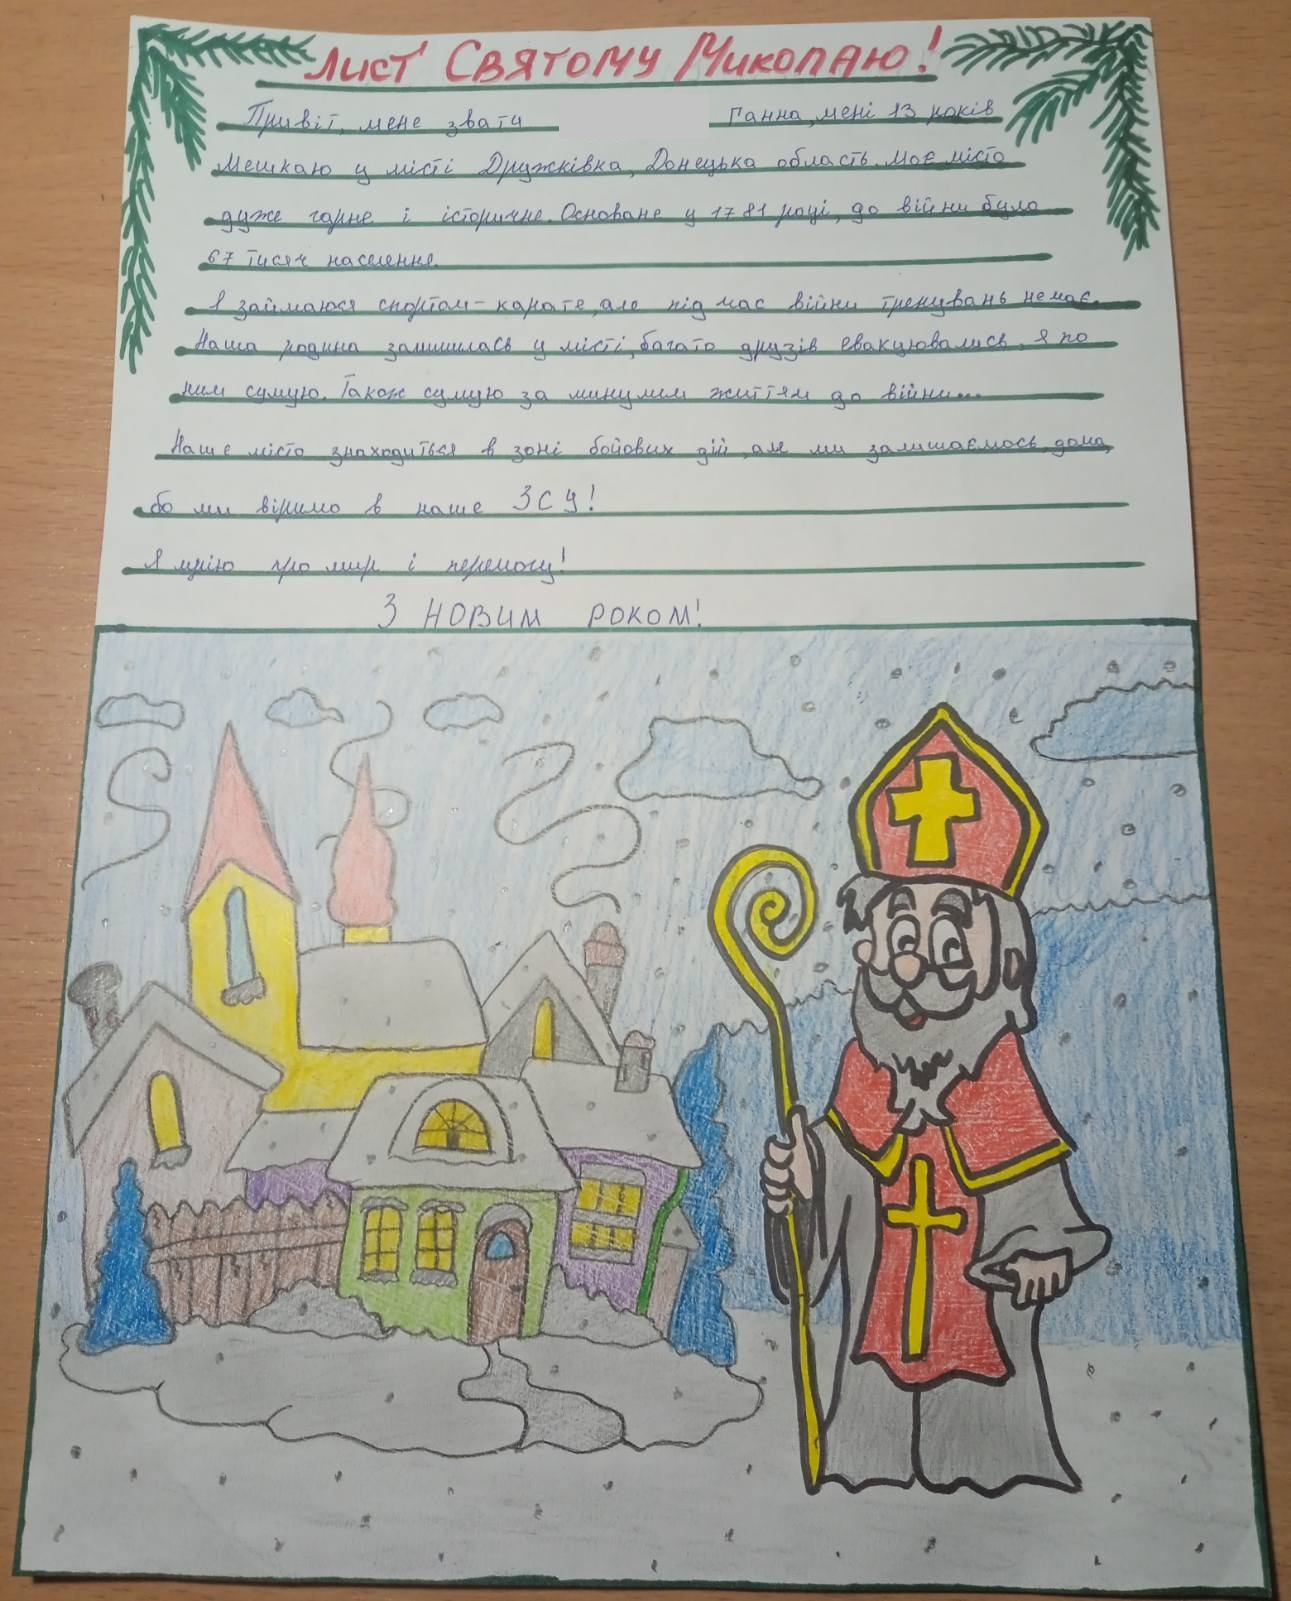 Лист Святому Миколаю!
Привіт, мене звати Ганна, мені 13 років
Мешкаю у місті Дружківка, Донецька область. Моє місто
дуже гарне і історичне. Основане у 1781 році, до війни було
67 тисяч населення.
Я займаюся спортом - карате, але під час війни тренувань немає.
Наша родина залишилась у місті, багато друзів евакуювались, я по
ним сумую. Також сумую за минулим життям до війни...
Наше місто знаходиться в зоні бойових дій, але ми залишаємось дома,
бо ми віримо в наше ЗСУ!
Я мрію про мир і перемогу!
З новим роком!